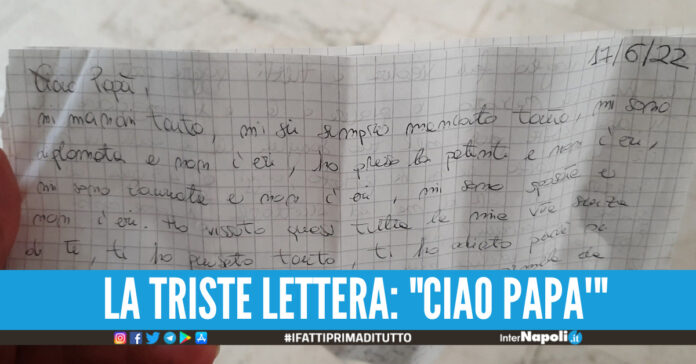 17/6/22
Ciao Papà,
mi manchi tanto, mi sei sempre mancato tanto, mi sono
diplomata e non c'eri, ho preso la patente e non c'eri,
mi sono laureata e non c'eri, mi sono sposata e
non c'eri. Ho vissuto quasi tutta la mia vita senza
di te, ti ho pensato tanto, ti ho
LA TRISTE LETTERA: "CIAO PAPA'"
#IFATTIPRIMADITUTTO
InterNapoli.it